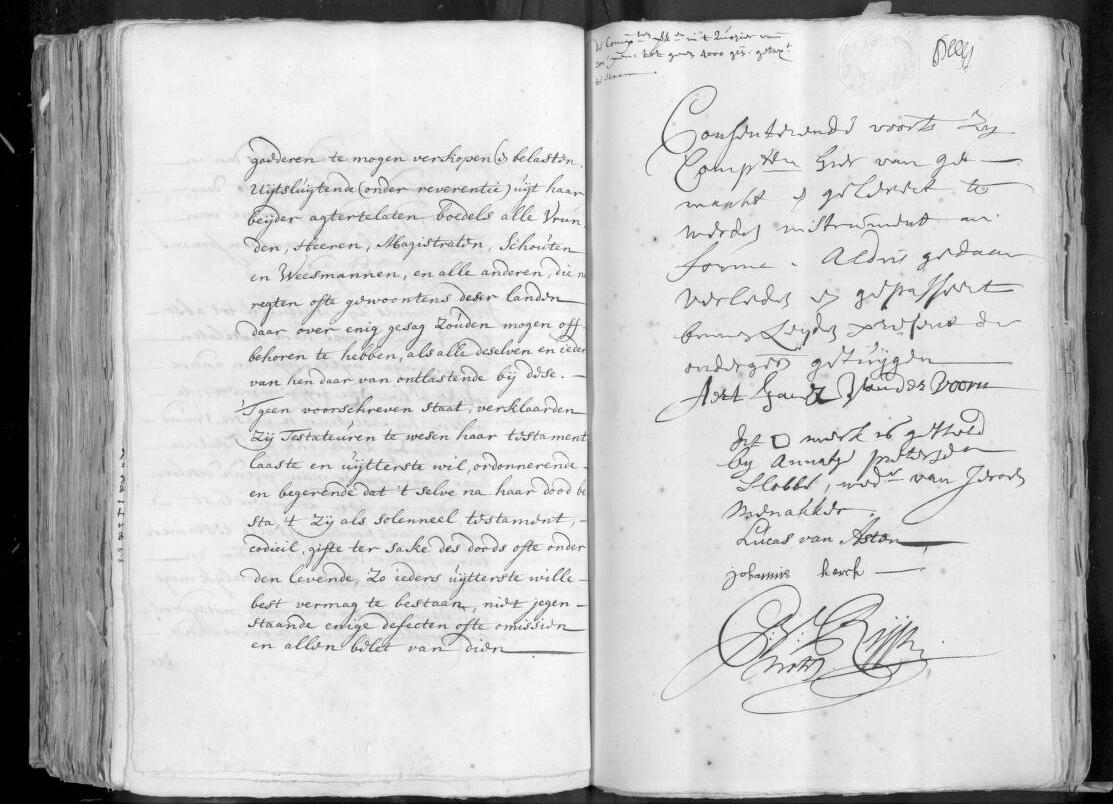 goederen te mogen verkopen (3 belasten.
Uijtsluijtende (onder reverentie) uijt haar
beijder agtertelaten boedels alle Vrun-
den, Heeren, Magistraten, Schouten
en Weesmannen, en alle anderen, die na
regten ofte gewoontens deser landen
daar over enig gesag zouden mogen off
behoren te hebben, als alle deselven en ieder
van hen daar van ontlastende bij dese. —
'Tgeen voorschreven staat, verklaarden
Zij Testateuren te wesen haar testament
laaste en uijtterste wil, ordonnerende
en begerende dat 't selve na haar dood be
sta, 't Zij als solenneel testament,
codicil, gifte ter sake des doods ofte onder
den levende, Zo ieders uijtterste wille
best vermag te bestaan, niet jegen-
staande enige defecten ofte omissien
en allen belet van dien
de Comptn
4000
Consenterende voorts Zij
Compten hier van ge-
maakt en gelevert te
werden instrument in
forme. Aldus gedaan
verleden en gepasseert
binnen Leyden present de
ondergen getuijgen
Aert van der Voorn
Dit merk is gestelt
by Annatge pieters
Slobbe, wede van
Lucas van Aston
johannis kerck